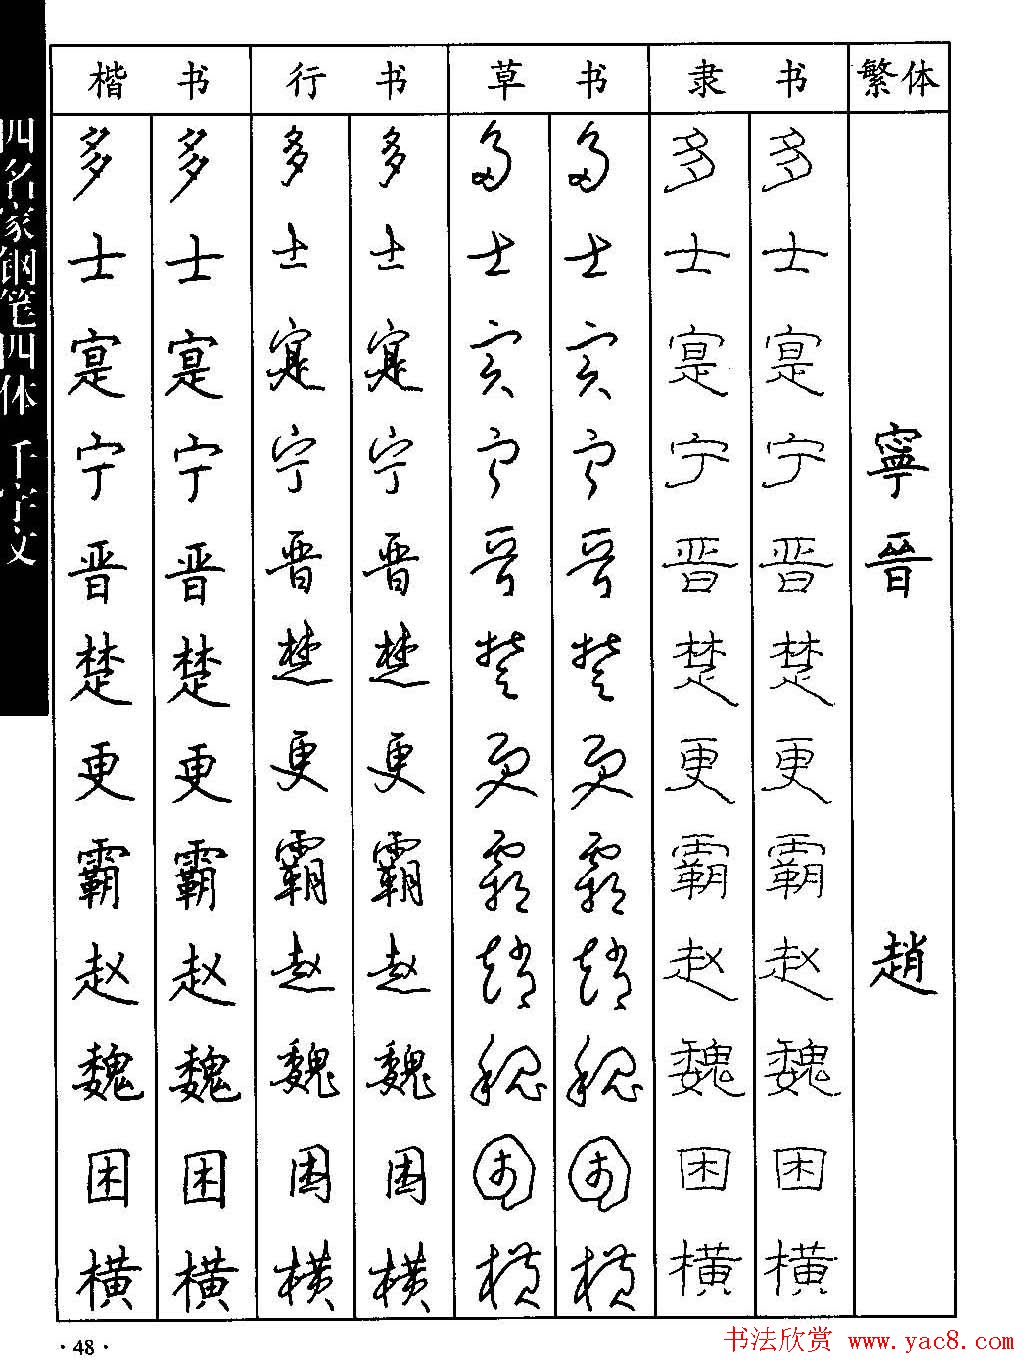 四名家钢笔四体 千字文
楷 书 行 书 草 书 隶 书 繁体
多 多 多 多 多 多 多 多
士 士 士 士 士 士 士 士
寔 寔 寔 寔 寔 寔 寔 寔
宁 宁 宁 宁 宁 宁 宁 宁 寧
晋 晋 晋 晋 晋 晋 晋 晋 晉
楚 楚 楚 楚 楚 楚 楚 楚
更 更 更 更 更 更 更 更
霸 霸 霸 霸 霸 霸 霸 霸
赵 赵 赵 赵 趙 趙 赵 赵 趙
魏 魏 魏 魏 魏 魏 魏 魏
困 困 困 困 困 困 困 困
横 横 横 横 横 横 横 横
·48·
书法欣赏 www.yac8.com